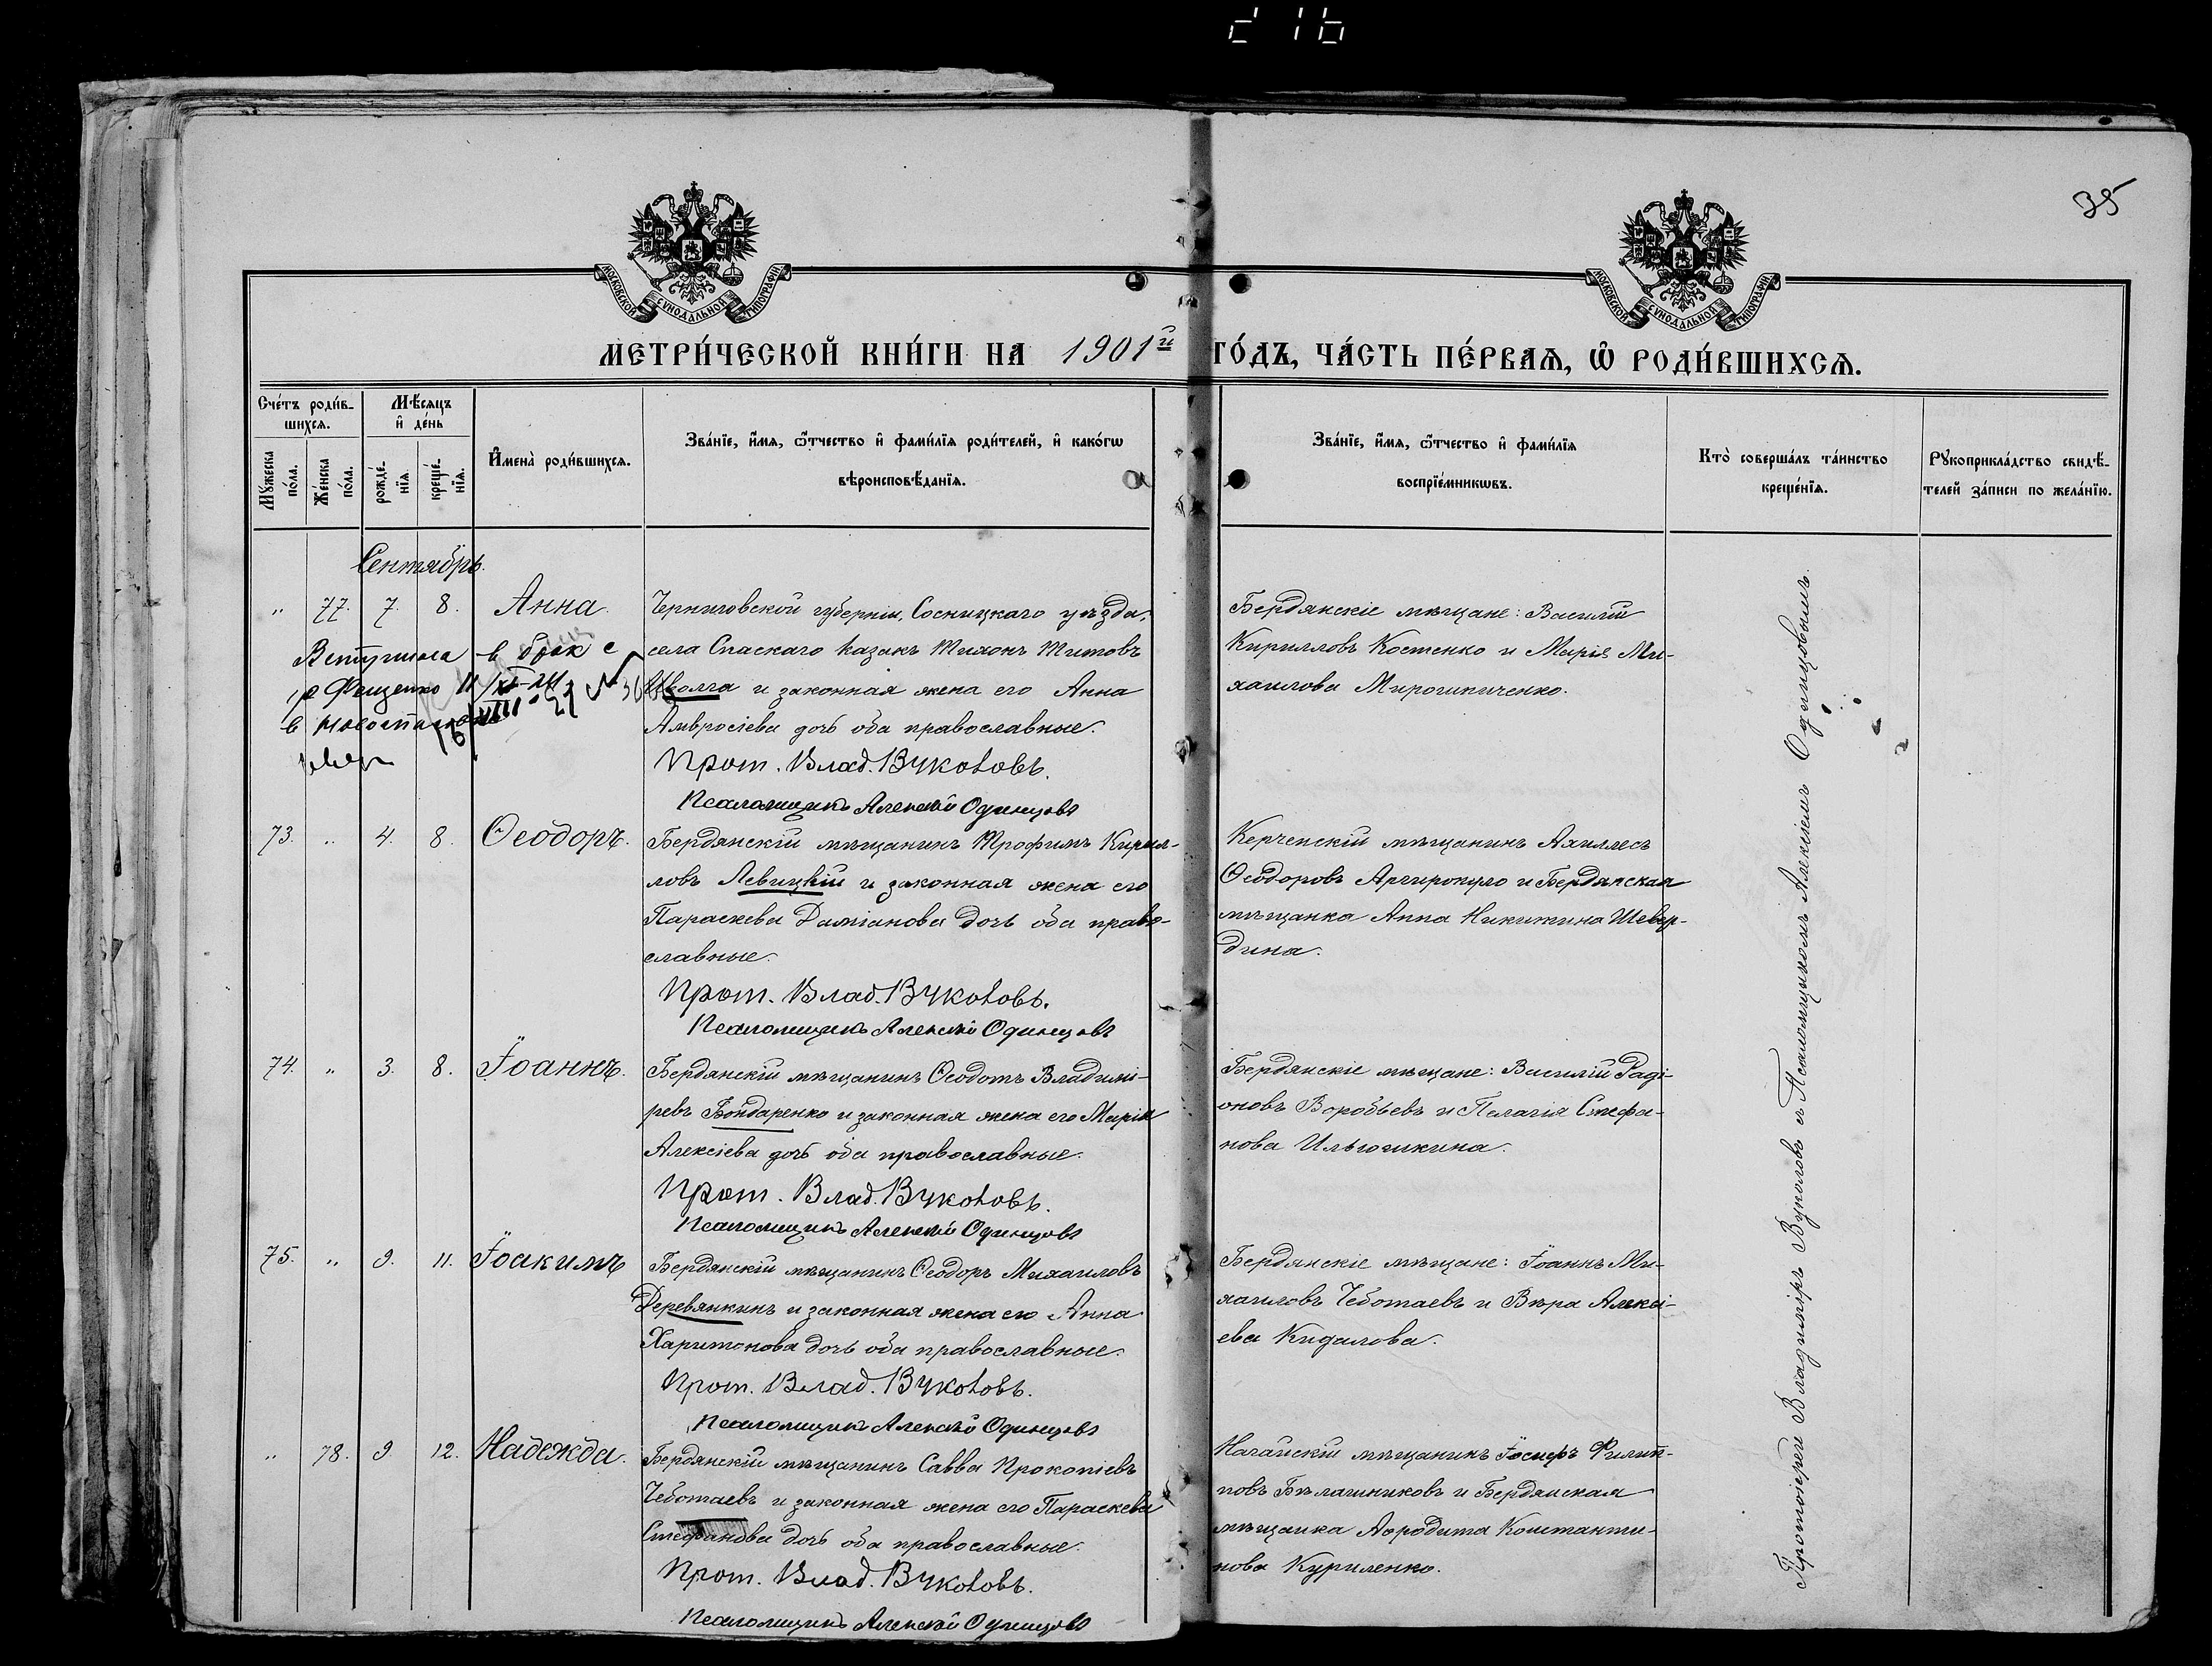 35
МОСКОВСКОЙ СѴНОДАЛЬНОЙ ТИПОГРАФІИ
МОСКОВСКОЙ СѴНОДАЛЬНОЙ ТИПОГРАФІИ
МЕТРИ́ЧЕСКОЙ КНИ́ГИ НА 1901й ГО́ДЪ, ЧА́СТЬ ПЕ́РВАѦ, Ѡ҆ РОДИ́ВШИХСѦ.
Сче́тъ роди́в-
шихсѧ.
Мꙋ́жеска по́ла.
Же́нска по́ла.
Мѣ́сѧцъ
и҆ де́нь
рожде́-
нїѧ.
креще́-
нїѧ.
И҆мена̀ роди́вшихсѧ.
Зва́нїе, и҆́мѧ, ѻ҆́тчество и҆ фами́лїѧ роди́телей, и҆ како́гѡ
вѣроисповѣ́данїѧ.
Зва́нїе, и҆́мѧ, ѻ҆́тчество и҆ фами́лїѧ
воспрїе́мникѡвъ.
Кто̀ соверша́лъ та́инство
креще́нїѧ.
Рꙋкоприкла́дство свидѣ́-
телей за́писи по жела́нїю.
Сентябрь.
" 77. 7. 8. Анна.
Черниговской губерніи, Сосницкаго уѣзда,
села Спаскаго казакъ Тихонъ Титовъ
Иволга и законная жена его Анна
Амвросіева дочь оба православные.
Прот. Влад. Вуколовъ.
Псаломщикъ Алексѣй Одинцовъ
Бердянскіе мѣщане: Василій
Кирилловъ Костенко и Марія Ми-
хаилова Мирошниченко.
Вступила в брак с
гр Фещенко
73. " 4. 8. Ѳеодоръ.
Бердянскій мѣщанинъ Трофимъ Кирил-
ловъ Левицкій и законная жена его
Параскева Даміанова дочь оба право-
славные.
Прот. Влад. Вуколовъ.
Псаломщикъ Алексѣй Одинцовъ
Керченскій мѣщанинъ Ахиллесъ
Ѳеодоровъ Аргиропуло и Бердянская
мѣщанка Анна Никитина Шевер-
дина.
74. " 3. 8. Іоаннъ.
Бердянскій мѣщанинъ Ѳеодотъ Владимі-
ревъ Бондаренко и законная жена его Марія
Алексіева дочь оба православные.
Прот. Влад. Вуколовъ.
Псаломщикъ Алексѣй Одинцовъ
Бердянскіе мѣщане: Василій Раді-
оновъ Воробьевъ и Пелагія Стефа-
нова Ильюшкина.
75. " 9. 11. Іоакимъ
Бердянскій мѣщанинъ Ѳеодоръ Михаиловъ
Деревянкинъ и законная жена его Анна
Харитонова дочь оба православные.
Прот. Влад. Вуколовъ.
Псаломщикъ Алексѣй Одинцовъ
Бердянскіе мѣщане: Іоаннъ Ми-
хаиловъ Чеботаевъ и Вѣра Алексі-
ева Кидалова.
" 78. 9 12. Надежда.
Бердянскій мѣщанинъ Савва Прокопіевъ
Чеботаевъ и законная жена его Параскева
Стефанова дочь оба православные.
Прот. Влад. Вуколовъ.
Псаломщикъ Алексѣй Одинцовъ
Ногайскій мѣщанинъ Іосифъ Филип-
повъ Бѣлашниковъ и Бердянская
мѣщанка Афродита Константи-
нова Куриленко.
Протоіерей Владиміръ Вуколовъ съ Псаломщикомъ Алексіемъ Одинцовымъ.